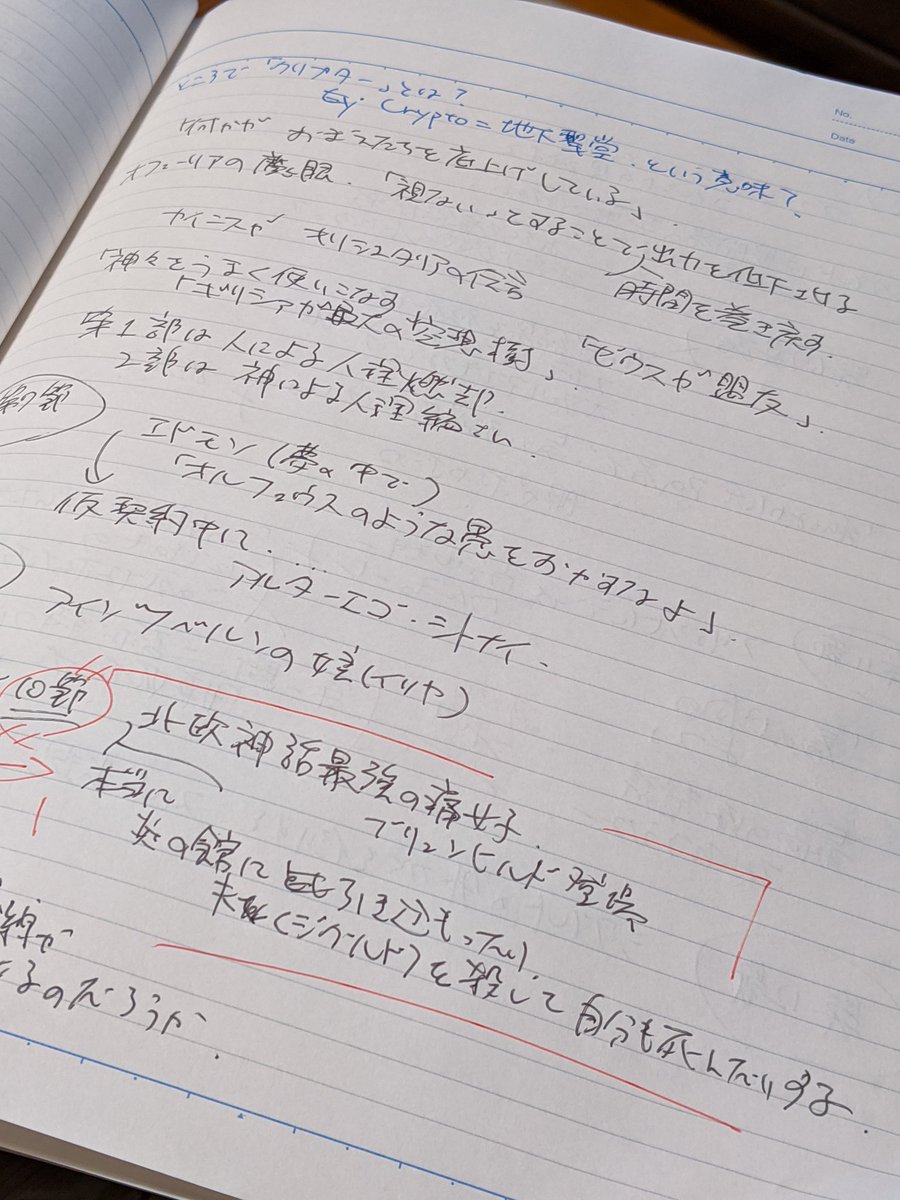 ところで「クリプター」とは?
Ey. Crypto = 地下聖堂. という意味?
何かが おまえたちを底上げしている」
オフェーリアの魔眼. 「視ない」とすることで出力を低下させる
時間を巻き戻す.
カイニスが キリシュタリアの伝言
「神々をうまく使いこなす
「ギリシアが最大の空想樹」. 「ゼウスが盟友」.
第1部は人による人理焼却.
2部は 神による人理編さい
第7節
エドモン(夢の中で)
「オルフェウスのような愚をおかすなよ」.
仮契約中に.
アルターエゴ・シトナイ.
アインツベルンの娘(イリヤ)
10節
北欧神話最強の痛女子
ブリュンヒルド登場
本当に
炎の館に 引きこもったり.
夫(シグルド)を殺して自分も死んだりする.
線が
するのだろうか.
No.
Date